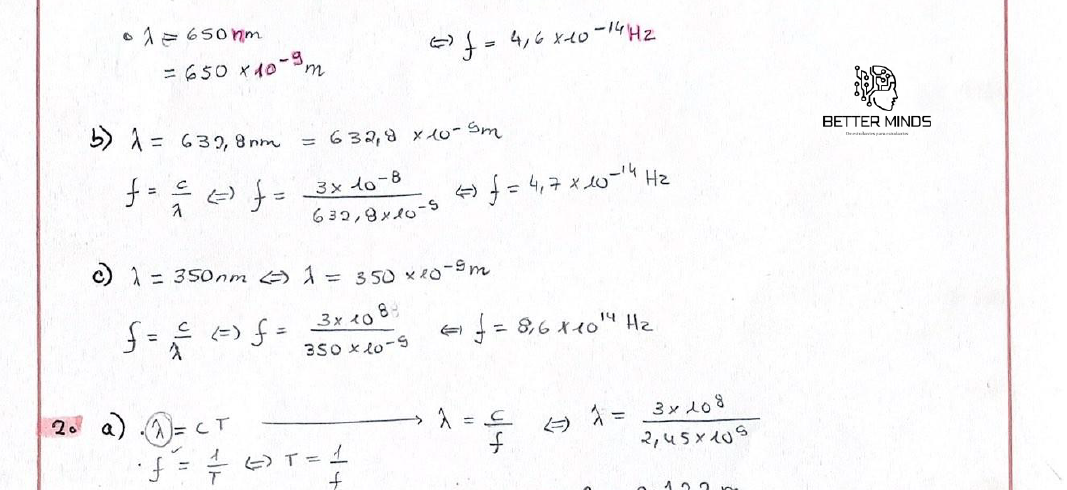 • λ = 650 nm ⇔ f = 4,6 × 10⁻¹⁴ Hz
= 650 × 10⁻⁹ m
BETTER MINDS
b) λ = 632,8 nm = 632,8 × 10⁻⁹ m
f = c/λ ⇔ f = 3 × 10⁻⁸ / 632,8 × 10⁻⁹ ⇔ f = 4,7 × 10⁻¹⁴ Hz
c) λ = 350 nm ⇔ λ = 350 × 10⁻⁹ m
f = c/λ ⇔ f = 3 × 10⁸ / 350 × 10⁻⁹ ⇔ f = 8,6 × 10¹⁴ Hz
2. a) · λ = cT → λ = c/f ⇔ λ = 3 × 10⁸ / 2,45 × 10⁹
· f = 1/T ⇔ T = 1/f